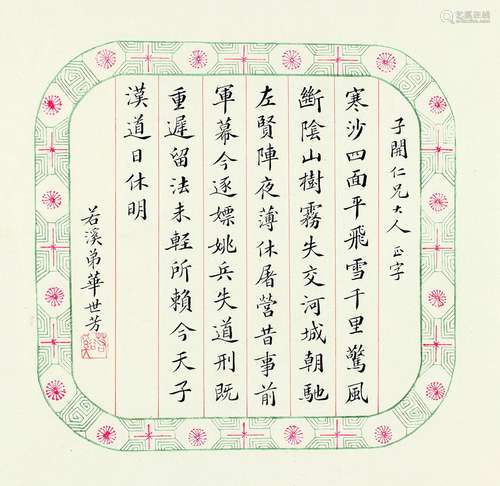 子開仁兄大人 正字
寒沙四面平飛雪千里驚風
斷陰山樹霧失交河城朝馳
左賢陣夜薄休屠營昔事前
軍幕今逐嫖姚兵失道刑既
重遲留法未輕所賴今天子
漢道日休明
若溪弟華世芳